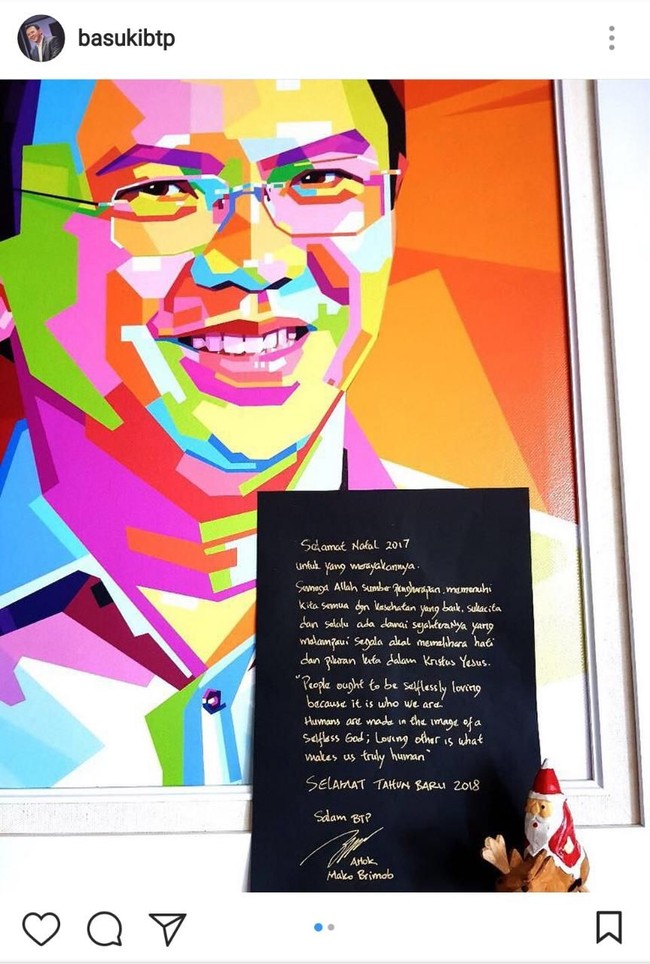 basukibtp
Selamat Natal 2017
untuk yang merayakannya.
Semoga Allah sumber pengharapan, memenuhi
kita semua dgn kesehatan yang baik, sukacita
dan selalu ada damai sejahteraNya yang
melampaui segala akal memelihara hati
dan pikiran kita dalam Kristus Yesus.
"People ought to be selflessly loving
because it is who we are.
Humans are made in the image of a
Selfless God; Loving other is what
makes us truly human"
SELAMAT TAHUN BARU 2018
Salam BTP
Ahok
Mako Brimob